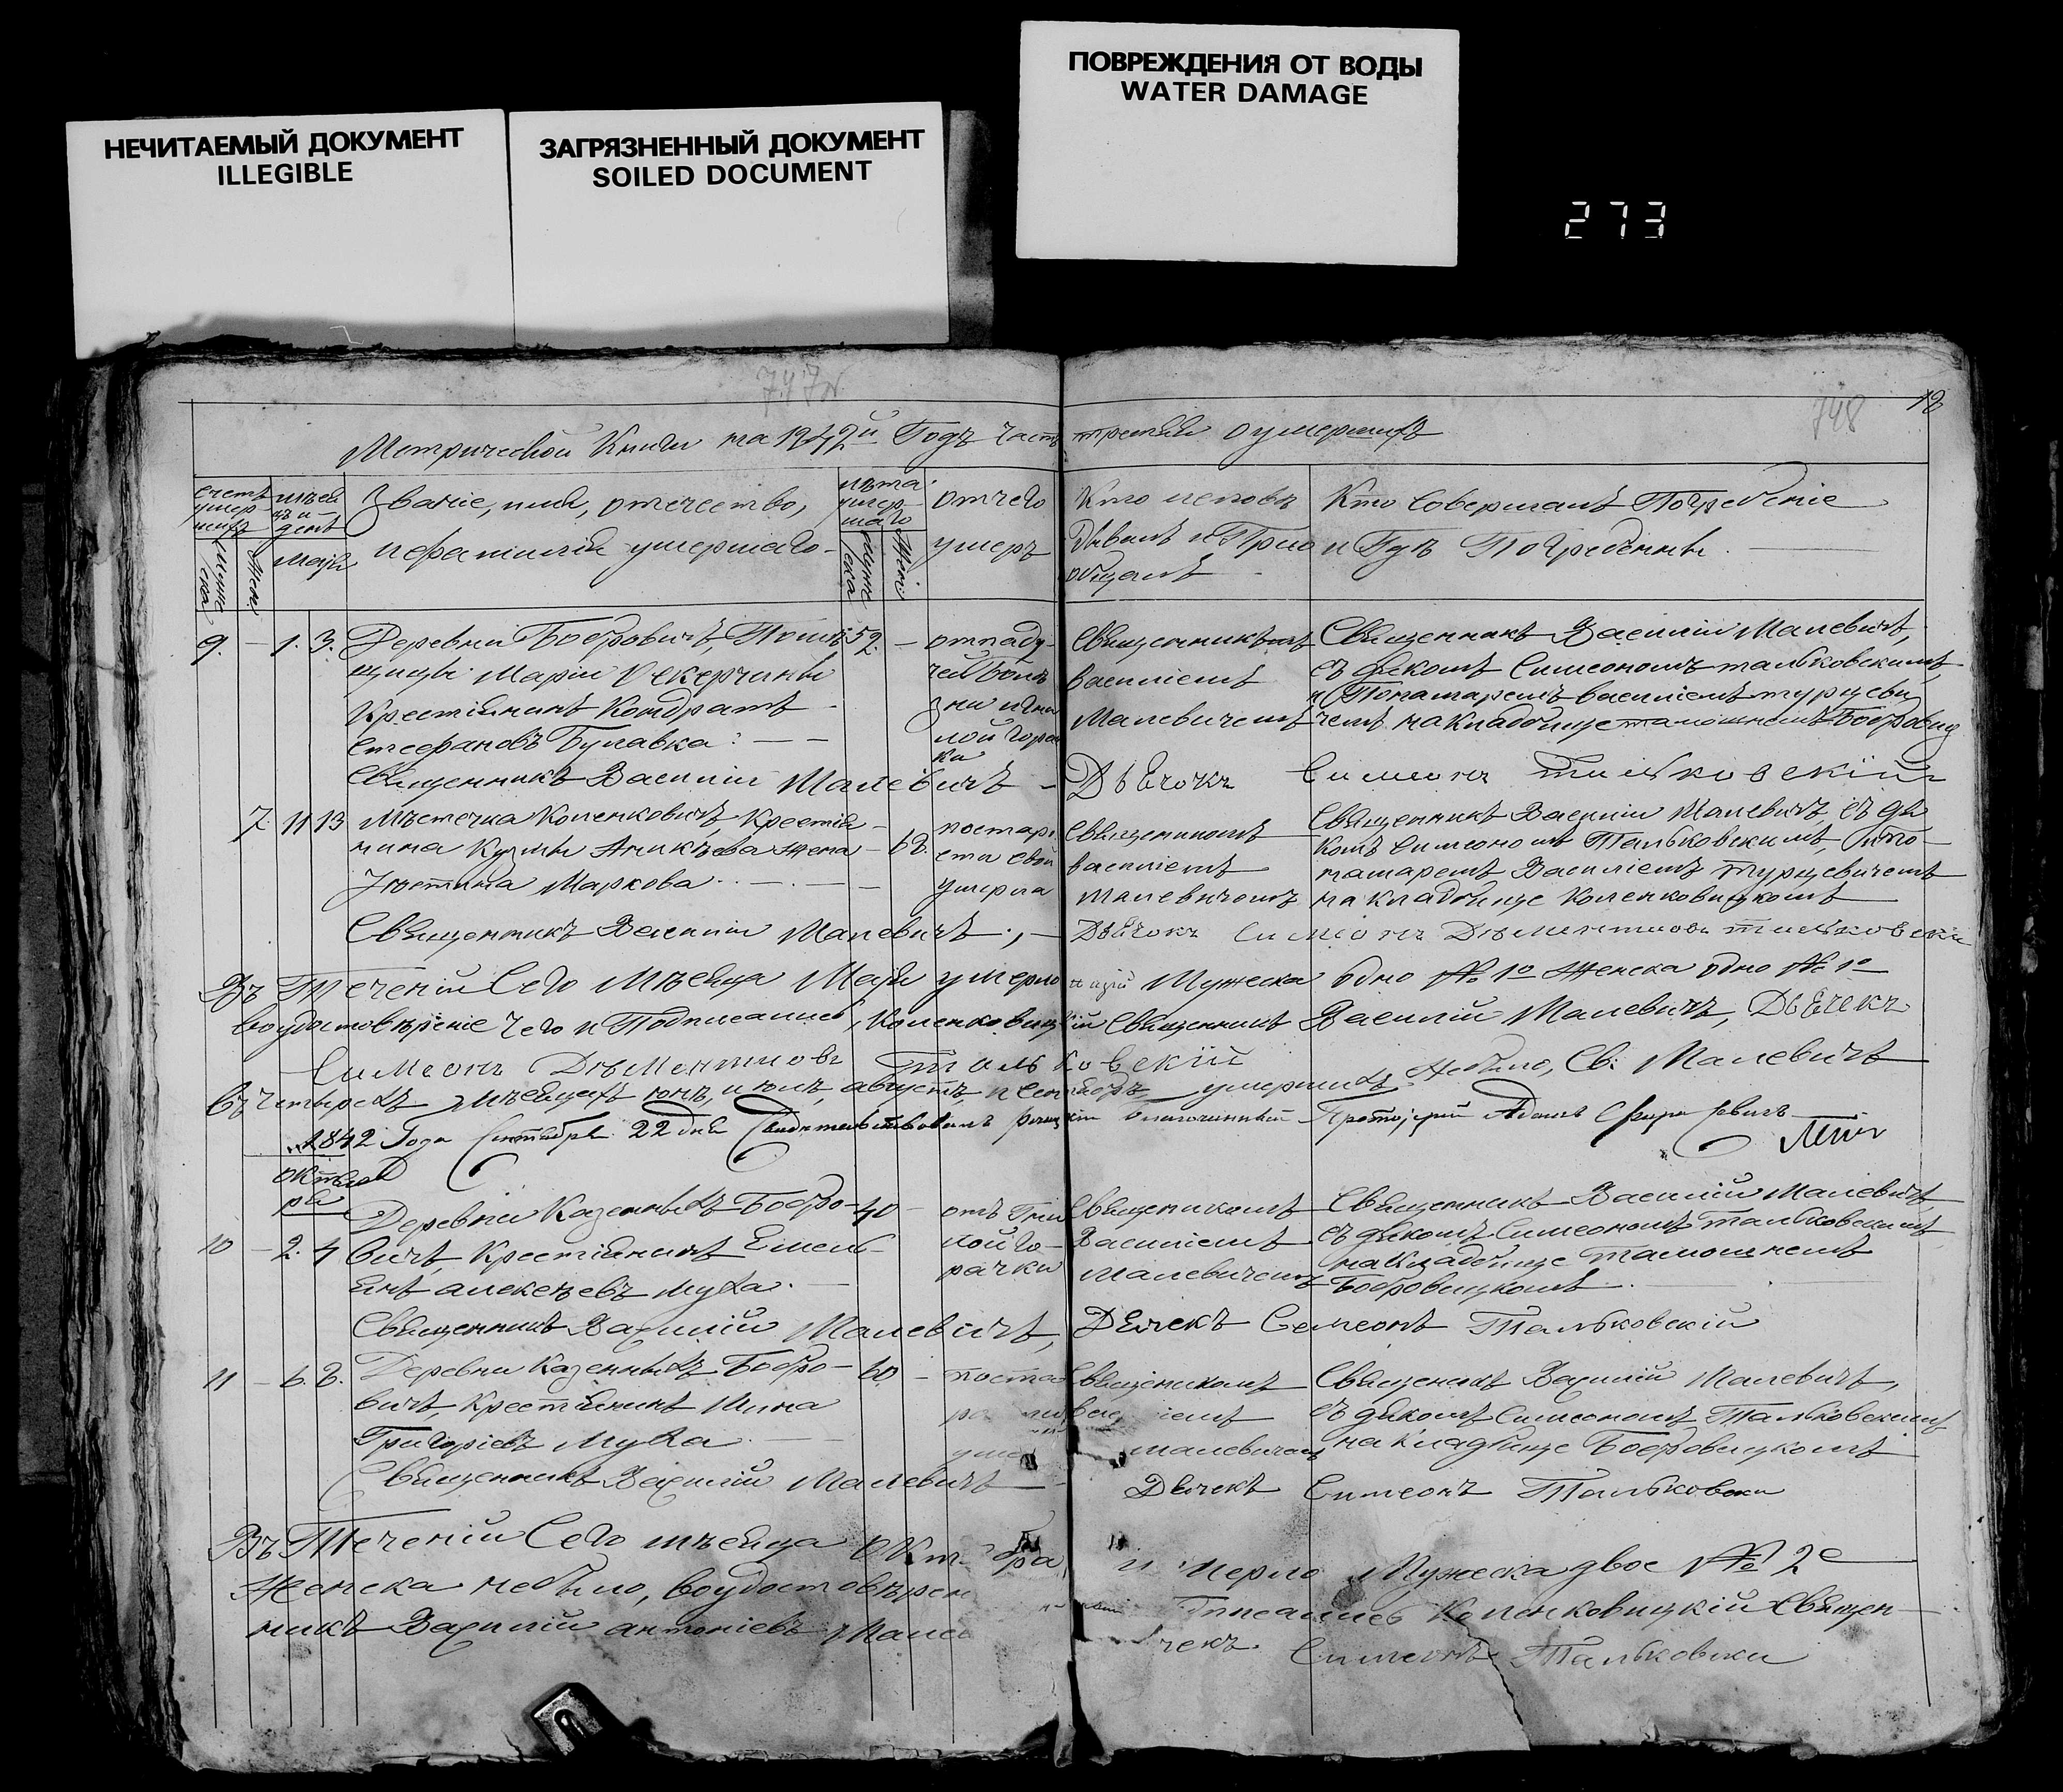 НЕЧИТАЕМЫЙ ДОКУМЕНТ
ILLEGIBLE
ЗАГРЯЗНЕННЫЙ ДОКУМЕНТ
SOILED DOCUMENT
ПОВРЕЖДЕНИЯ ОТ ВОДЫ
WATER DAMAGE
273
747
748
Метрической Книги на 1842й Годъ часть третья о умершихъ
Званіе, имя, отечество,
и фамилія умершаго
лѣта умер-
шаго
отъ чего
умеръ
Кто исповѣ
дывалъ и Прио
общалъ
Кто Совершалъ Погребеніе
и Гдѣ Погребенны
Маія
9. – 1. 3. Деревни Бобровичъ, Помѣ 52. –
щицы Маріи
Крестіянинъ Кондратъ
Стефановъ Булавка
отпаду-
чей Болѣ
зни и гни
лой горяч
ки
Священникомъ
Василіемъ
Малевичемъ
Священникъ Василій Малевичъ,
съ дякомъ Симеономъ Тальковскимъ,
и Понамаремъ Василіемъ Турцеви
чемъ на кладбище тамошнемъ Бобровиц
Священникъ Василій Малевичъ – Дьячокъ Симеонъ Тальковскій
7. 11 13 Мѣстечка Копенковичъ, Крестія-
нина Кузмы Аникѣева жена – 68.
Іюстина Маркова
по стар
сти свой
умерла
Священникомъ
Василіемъ
Малевичемъ
Священникъ Василій Малевичъ, съ дя
комъ Симеономъ Тальковскимъ, и По-
намаремъ Василіемъ Турцевичемъ
на кладбище Копенковицкомъ
Священникъ Василій Малевичъ – Дьячокъ Симеонъ Дѣментіновъ Тальковски
Въ Теченіи Сего Мѣсяца Маія умерло Мужеска одно № 1о Женска одно № 1о
во удостовѣреніе чего и Подписались, Копенковицкій Священникъ Василій Малевичъ, Дьячекъ
Симеонъ Дѣментіновъ Тальковскій
Въ Четырехъ мѣсяцахъ юнѣ, и юлѣ, августѣ, и сентябрѣ умершихъ Небыло, Св: Малевичъ
1842 Года Сентября 22 дня Свидетельствовалъ благочинный Протоіерей Адамъ
Октяб
ря
10 – 2. 4 Деревни Казенныхъ Бобро- 40 –
вичъ, Крестіянинъ Емель-
янъ Алексѣевъ Муха.
отъ Гни
лой Го-
рячки
Священикомъ
Василіемъ
Малевичемъ
Священникъ Василій Малевичъ
съ дякомъ Симеономъ Тальковскимъ
на кладбище Тамошнемъ
Бобровицкомъ
Священникъ Василій Малевичъ, Дьячекъ Симеонъ Тальковскій
11 – 6. 8. Деревни Казенныхъ Бобро- 60. –
вичъ, Крестіянинъ Мина
Григоріевъ Муха
Священикомъ
малевичемъ
Священикъ Василій Малевичъ,
съ дякомъ Симеономъ Тальковскимъ
на Кладбище Бобровицкомъ
Священникъ Василій Малевичъ – Дьячекъ Симеонъ Тальковски
Въ Теченіи Сего мѣсяца Октября умерло Мужеска двое № 2е
Женска небыло, во удостовѣрен Копенковицкій Священ-
никъ Василій Антоніевъ Малев чекъ Симеонъ Тальковски